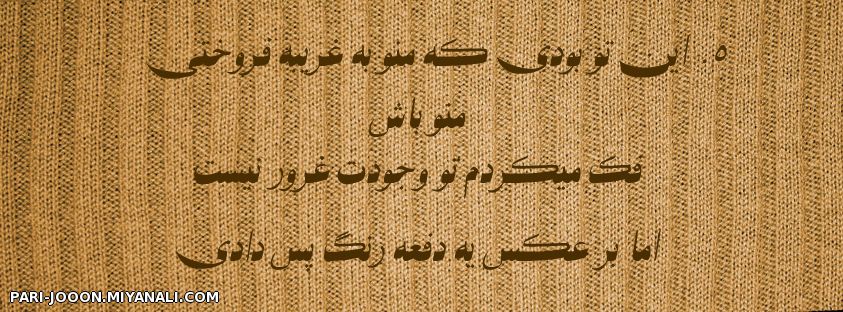 ۵. این تو بودی که منو به غریبه فروختی
منو باش
فک میکردم تو وجودت غرور نیست
اما بر عکس یه دفعه رنگ پس دادی
PARI-JOOON.MIYANALI.COM